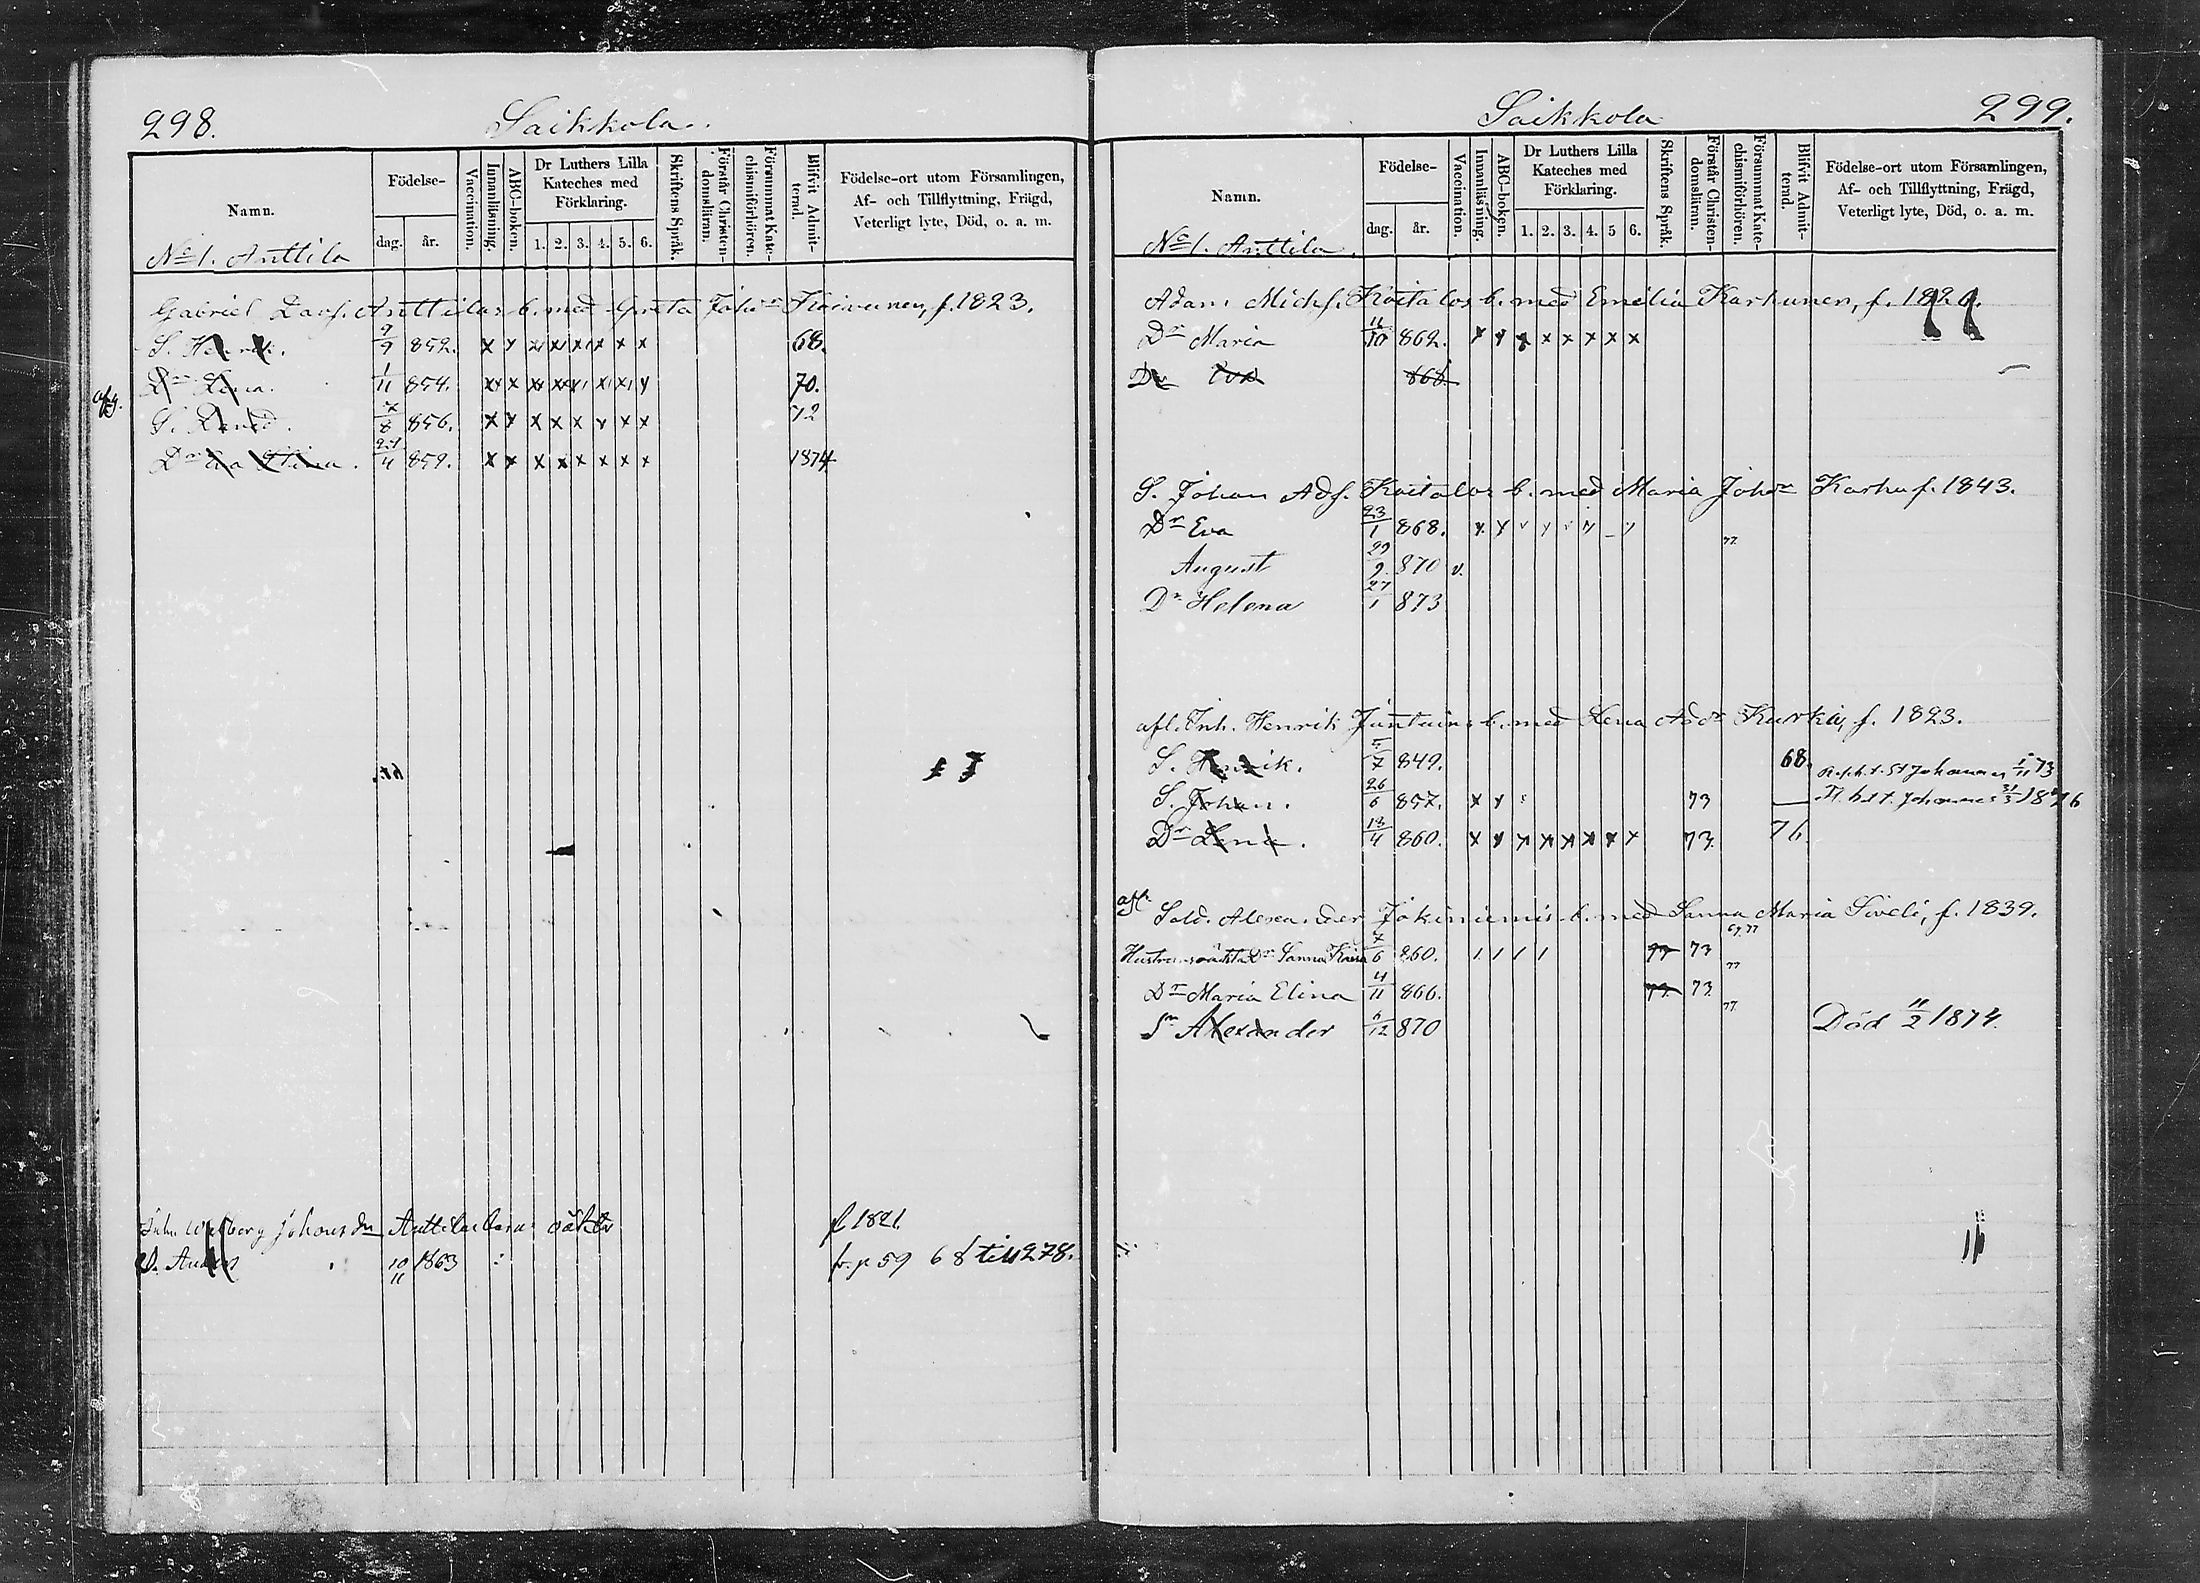 298.
Saikkola.
Namn.
Födelse-
dag.
år.
Vaccination.
Innanläsning.
ABC-boken.
Dr Luthers Lilla Kateches med Förklaring.
1. 2. 3. 4. 5. 6.
Skriftens Språk.
Förstår Christendomsläran.
Försummat Katechismiförhören.
Blifvit Admitterad.
Födelse-ort utom Församlingen, Af- och Tillflyttning, Frägd, Veterligt lyte, Död, o. a. m.
No 1. Anttila
Gabriel Davs. Anttilas b. med Greta Johsdr Koivunen, f. 1823.
S. Henrik. 9/9 852. x x x x x x x x 68.
Dr Lena. 1/11 854. x x x x x x x x 70.
afg.
S. 7/8 856. x x x x x x x x 72
Dr Eva Stina. 4 859. x x x x x x x x 1874
Johansdr Anttilas
f. 1821.
S. 10/11 1863 fr. p 59 68 till 278.
Saikkola
299.
Namn.
Födelse-
dag.
år.
Vaccination.
Innanläsning.
ABC-boken.
Dr Luthers Lilla Kateches med Förklaring.
1. 2. 3. 4. 5 6.
Skriftens Språk.
Förstår Christendomsläran.
Försummat Katechismiförhören.
Blifvit Admitterad.
Födelse-ort utom Församlingen, Af- och Tillflyttning, Frägd, Veterligt lyte, Död, o. a. m.
No 1. Anttila.
Adam Michs. Koitalos b. med Emelia Karhunen, f.
Dr Maria 10 862. x x x x x x x x
Dr Eva 868.
S. Johan Ads. Koitalos b. med Maria Johdr Karhu f. 1843.
Dr Eva 23/1 868. x x
77
August 29/9 870 v.
Dr Helena 27/1 873
afl. Inh. Henrik Juntunins b. med Lena Addr Kurki, f. 1823.
S. Henrik. 5/7 849. 68. St Johannes 1/11 73
S. Johan. 26/6 857. x x 73 — t. Johannes 31/3 1876
Dr Lena. 18/4 860. x x x x x x x x 73. 76.
afl.
Sold. Alexander Jokiniemis b. med Sanna Maria Siveli, f. 1839.
Hustruns oäkta Dr Sanna Kaisa 7/6 860. 1 1 1 1 77 73 77
Dr Maria Elina 4/11 866. 77. 73. 77
Sn Alexander 6/12 870 77 Död 11/2 1874.